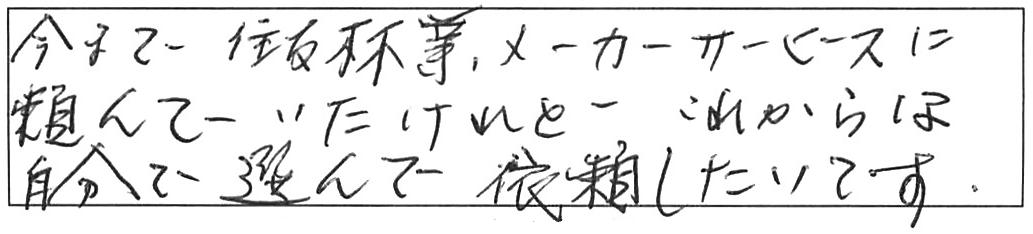 今まで住友林業、メーカーサービスに
頼んでいたけれど これからは
自分で選んで依頼したいです.